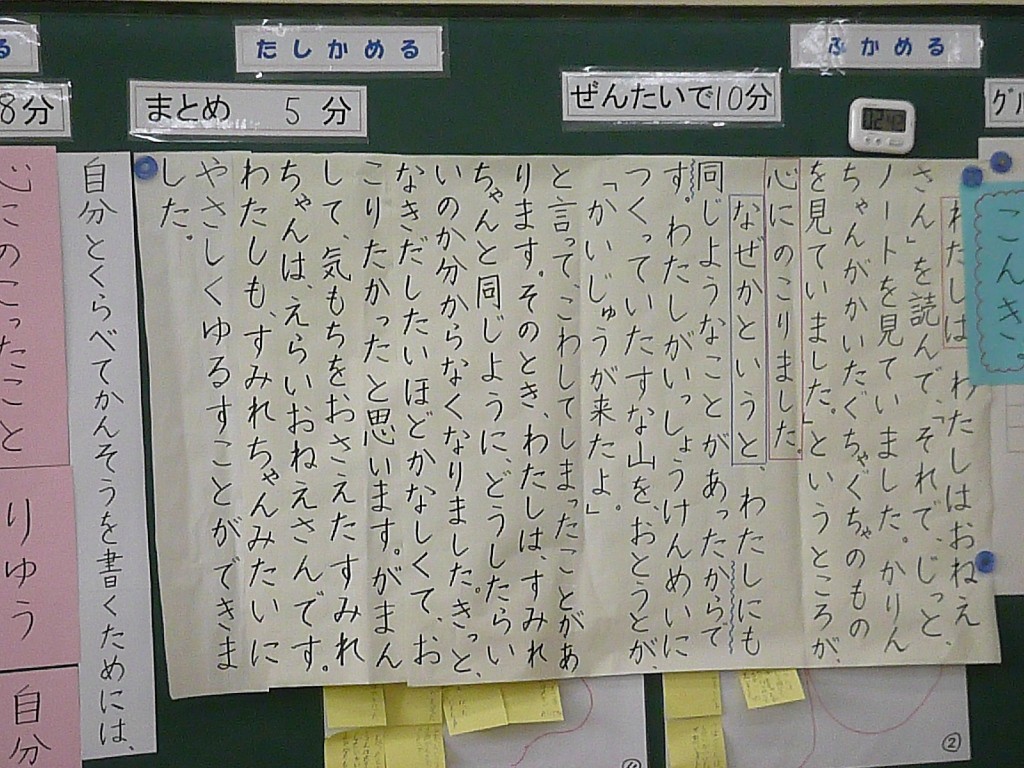 ふかめる
たしかめる
る
グル
ぜんたいで10分
まとめ 5分
8分
こんき。
わたしは わたしはおねえ
さん」を読んで、「それで、じっと、
ノートを見ていました。かりん
ちゃんがかいたぐちゃぐちゃのもの
を見ていました。」というところが、
心にのこりました。
なぜかというと、わたしにも
同じようなことがあったからで
す。わたしがいっしょうけんめいに
つくっていたすな山を、おとうとが、
「かいじゅうが来たよ。」
と言って、こわしてしまったことがあ
ります。そのとき、わたしは、すみれ
ちゃんと同じように、どうしたらい
いのか分からなくなりました。きっと、
なきだしたいほどかなしくて、お
こりたかったと思います。がまん
して、気もちをおさえたすみれ
ちゃんは、えらいおねえさんです。
わたしも、すみれちゃんみたいに
やさしくゆるすことができま
した。
自分とくらべてかんそうを書くためには、
心にのこったこと
りゆう
自分
②